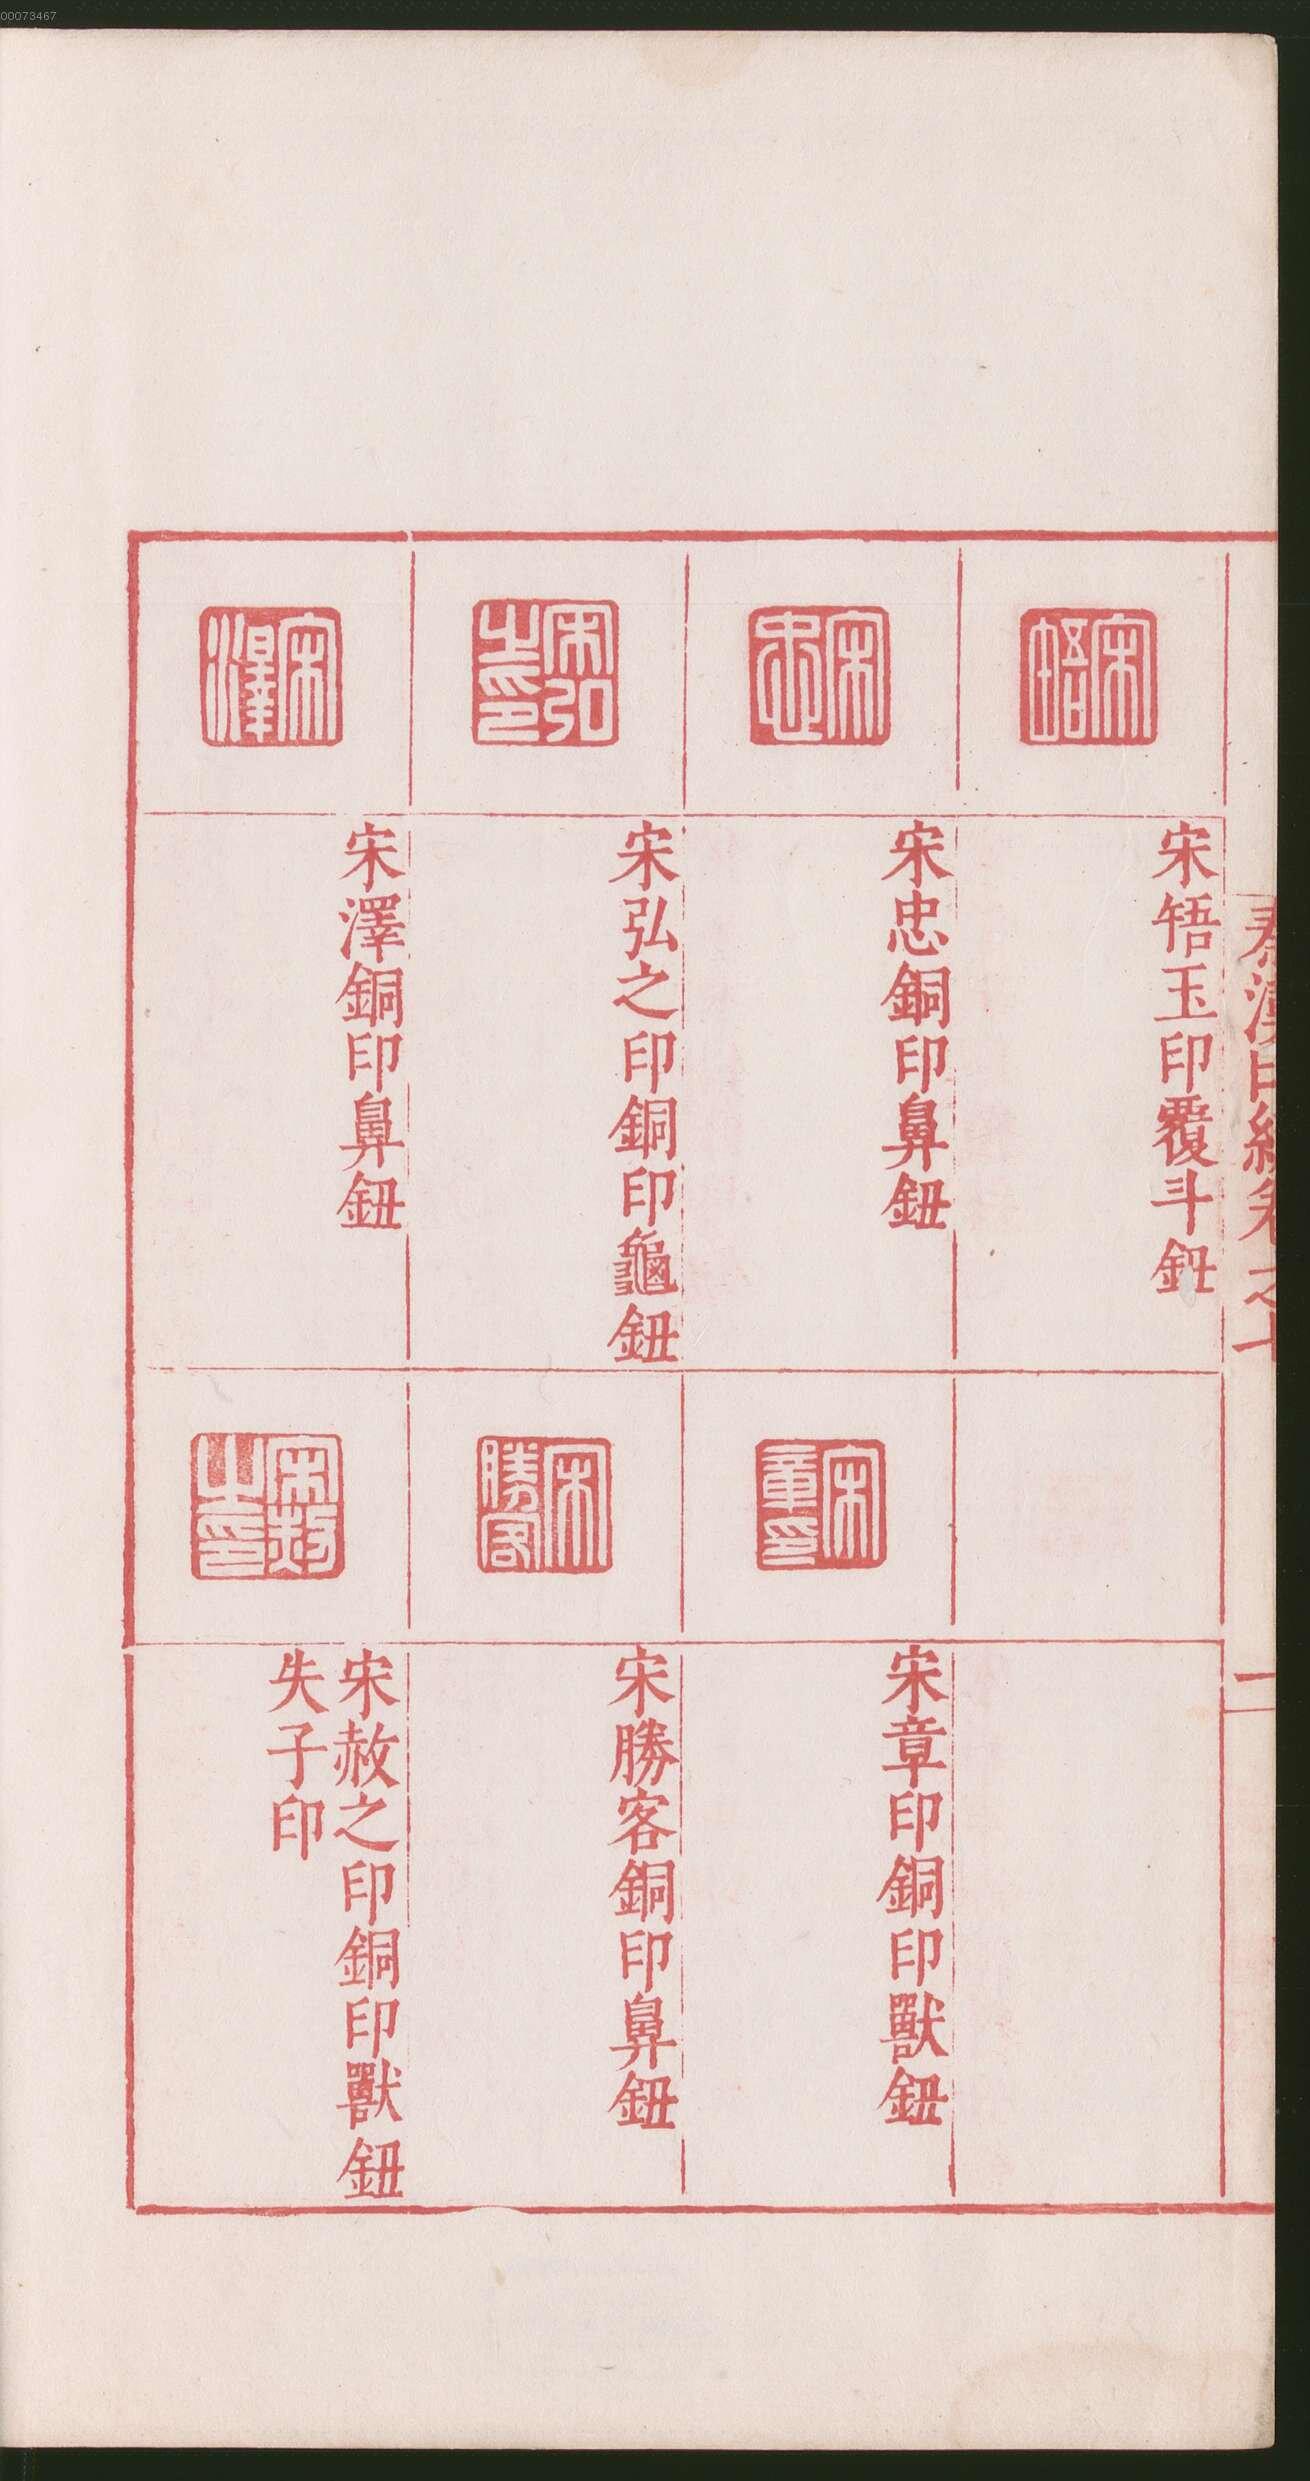 00073467
秦漢印統卷之七
二
宋䎸玉印覆斗鈕
宋忠
宋忠銅印鼻鈕
宋弘之印
宋弘之印銅印龜鈕
宋澤
宋澤銅印鼻鈕
宋章印
宋章印銅印獸鈕
宋勝客
宋勝客銅印鼻鈕
宋赦之印
宋赦之印銅印獸鈕
失子印